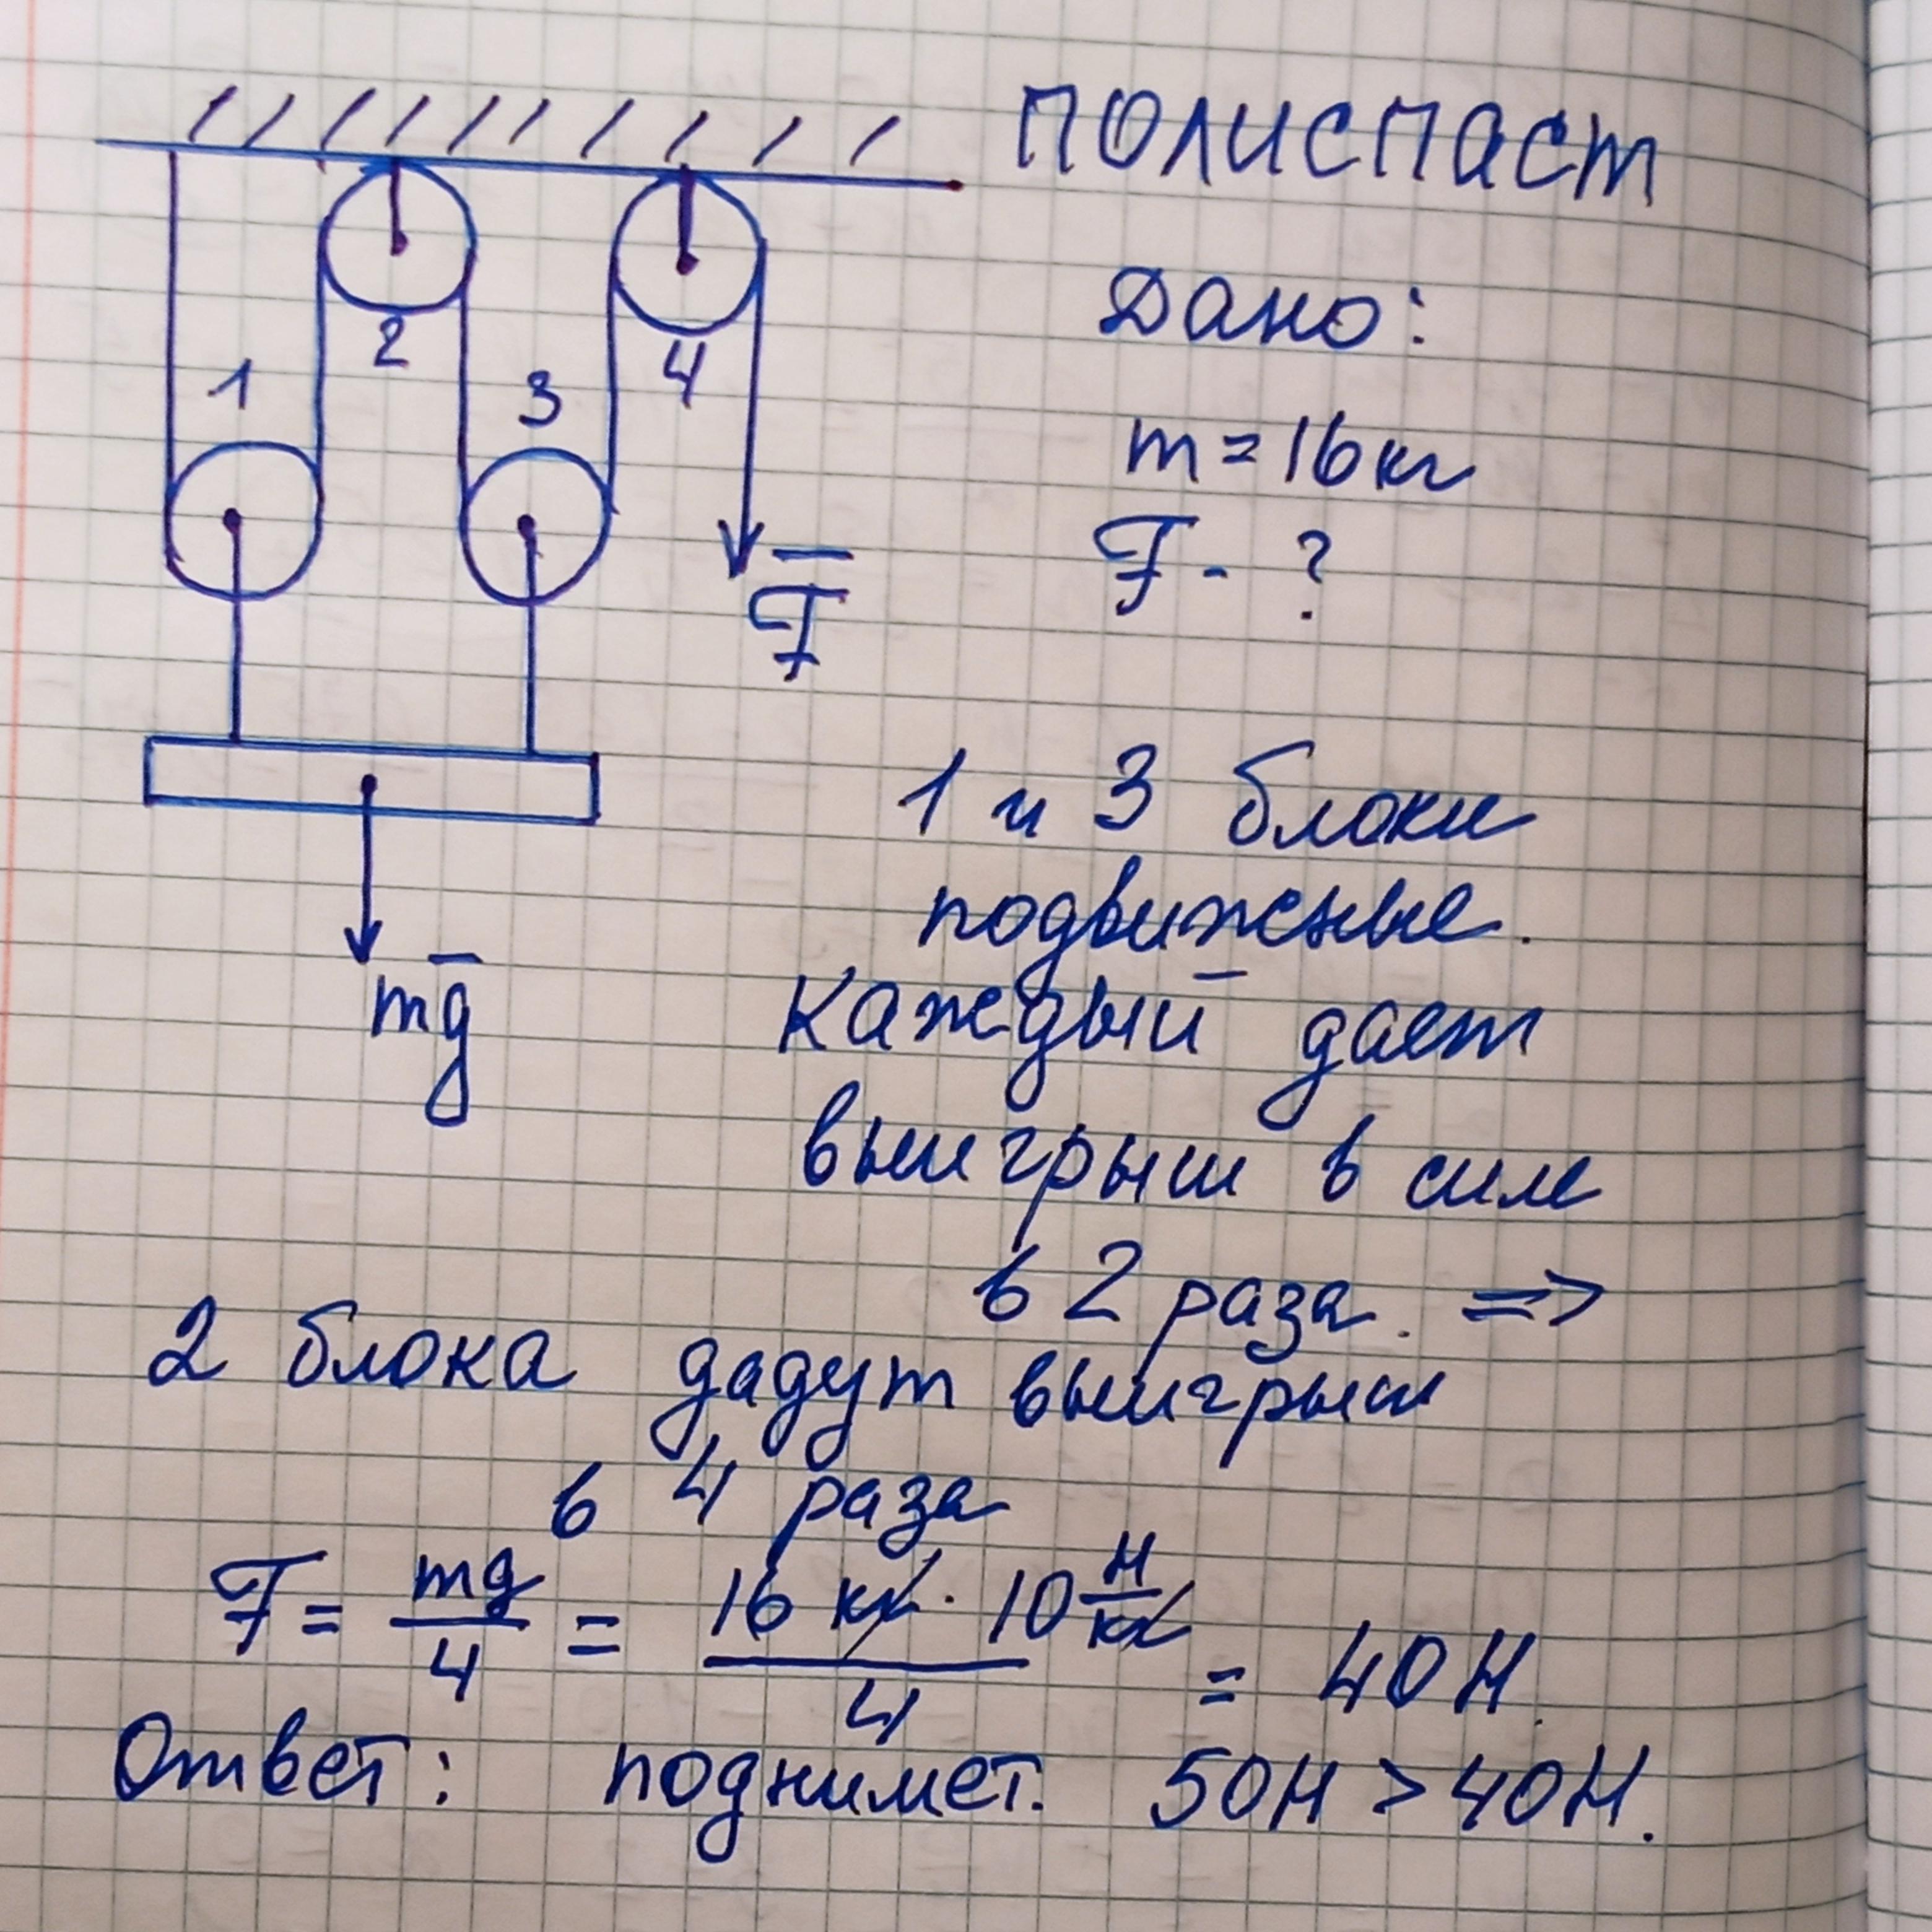 ПОЛИСПАСТ
Дано:
m = 16 кг
F - ?
1
2
3
4
F̅
mg̅
1 и 3 блоки
подвижные.
Каждый дает
выигрыш в силе
в 2 раза. =>
2 блока дадут выигрыш
в 4 раза
F = mg/4 = 16 кг · 10 Н/кг / 4 = 40 Н.
Ответ: поднимет. 50Н > 40Н.